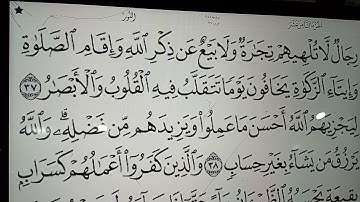 رِجَالٌ لَّا تُلْهِيهِمْ تِجَٰرَةٌ وَلَا بَيْعٌ عَن ذِكْرِ ٱللَّهِ وَإِقَامِ ٱلصَّلَوٰةِ
وَإِيتَآءِ ٱلزَّكَوٰةِ يَخَافُونَ يَوْمًا تَتَقَلَّبُ فِيهِ ٱلْقُلُوبُ وَٱلْأَبْصَٰرُ ٣٧
لِيَجْزِيَهُمُ ٱللَّهُ أَحْسَنَ مَا عَمِلُوا۟ وَيَزِيدَهُم مِّن فَضْلِهِۦ ۗ وَٱللَّهُ
يَرْزُقُ مَن يَشَآءُ بِغَيْرِ حِسَابٍ ٣٨ وَٱلَّذِينَ كَفَرُوٓا۟ أَعْمَٰلُهُمْ كَسَرَابٍۭ
بِقِيعَةٍ يَحْسَبُهُ ٱلظَّمْـَٔانُ مَآءً